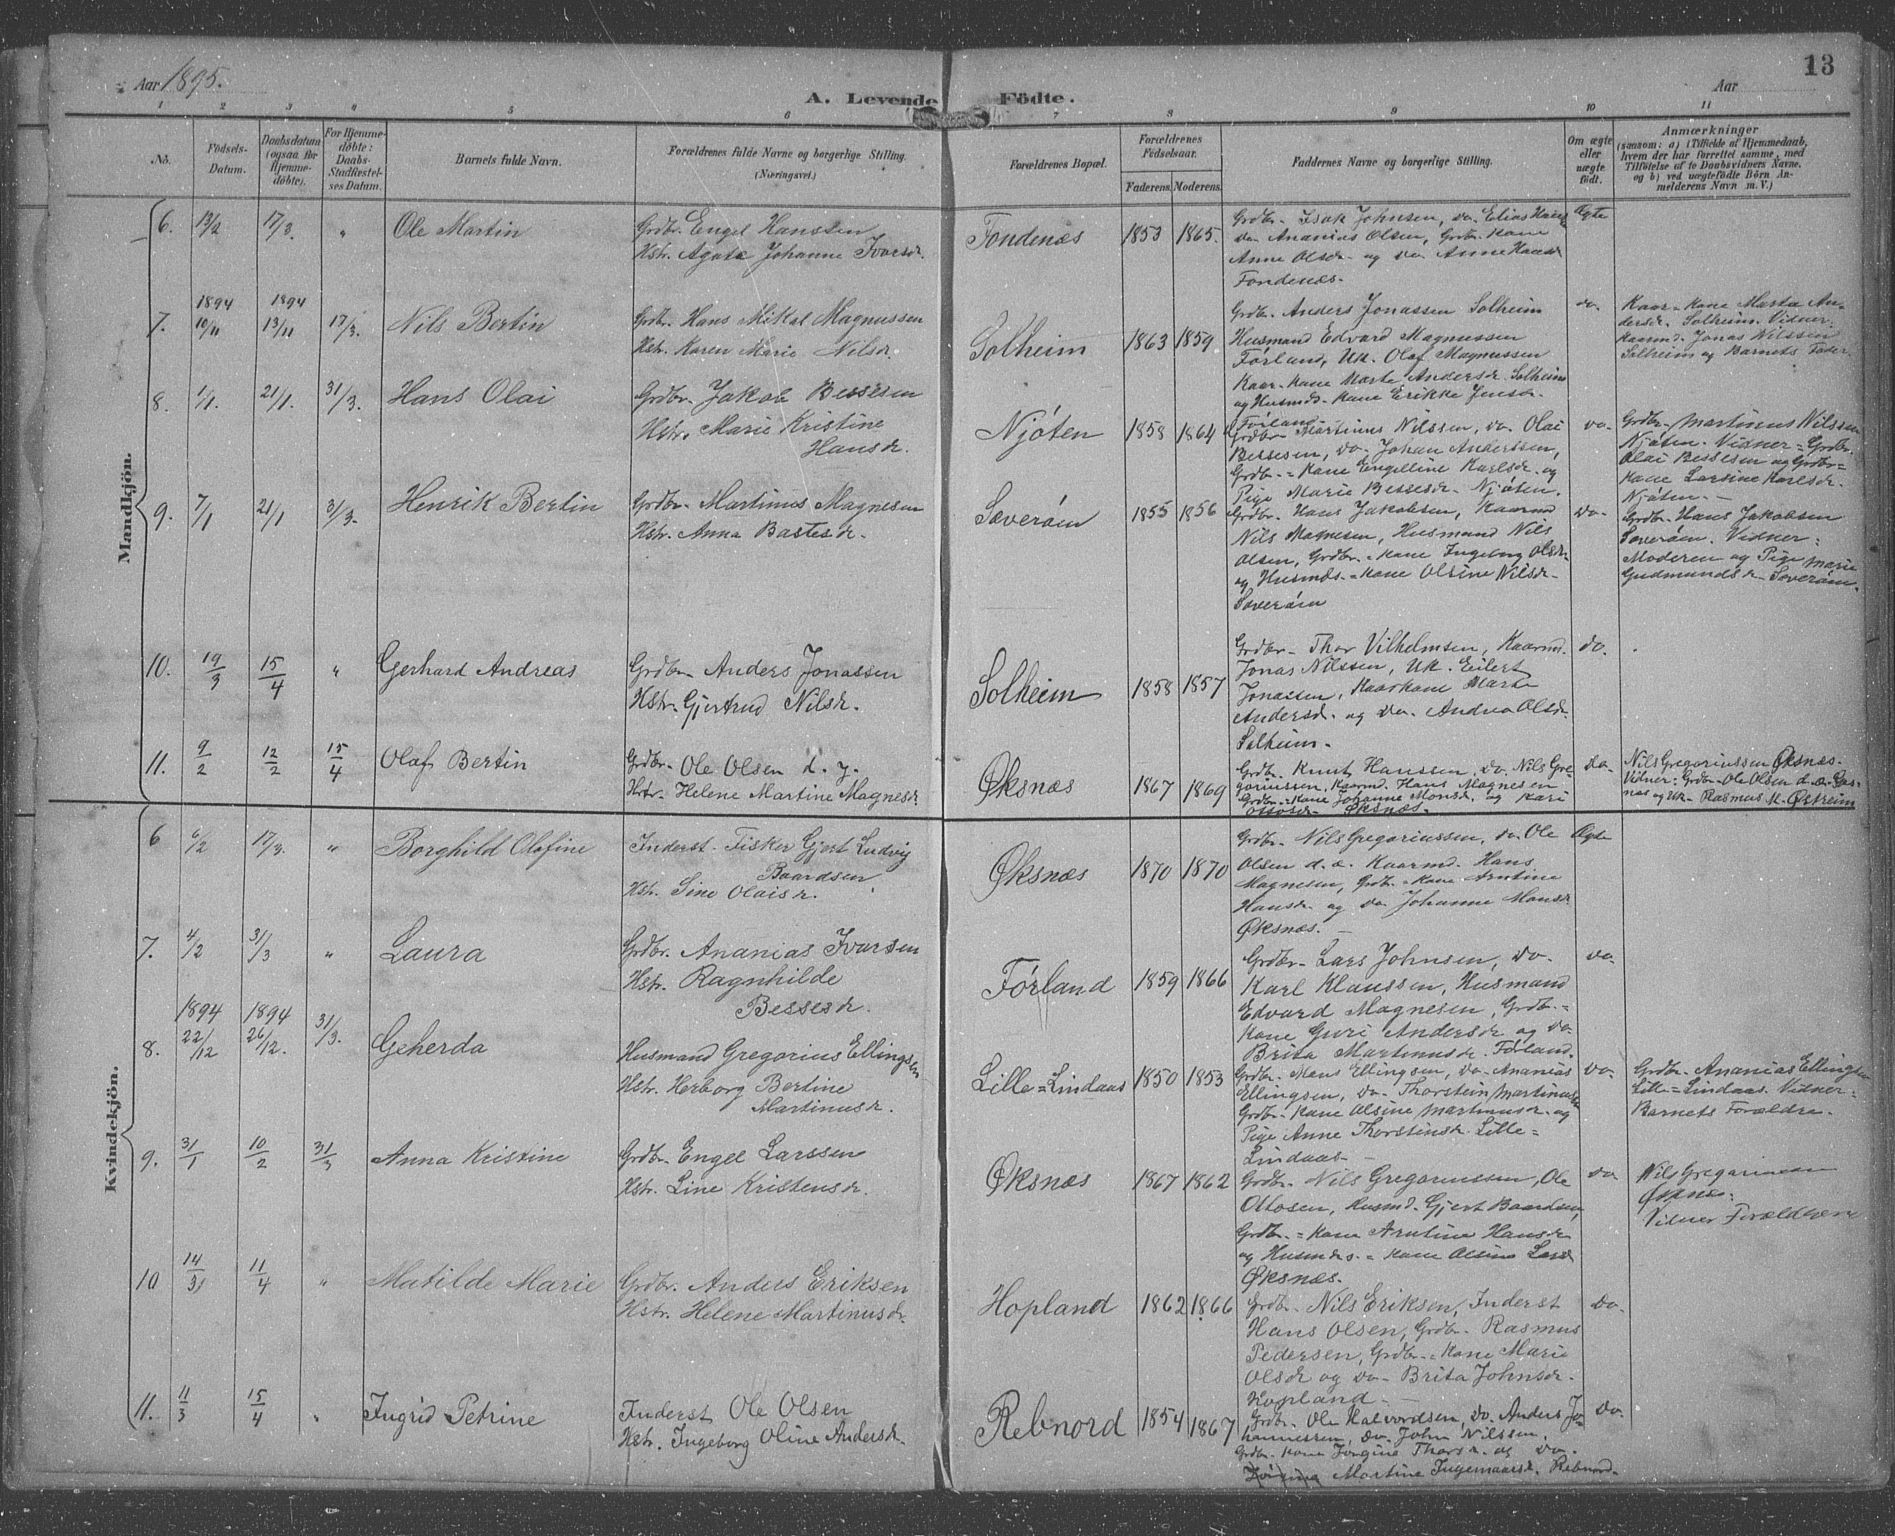 Aar 1895.
A. Levende Födte.
Aar
13
1 2 3 4 5 6 7 8 9 10 11
No. Födsels-Datum. Daabsdatum (ogsaa for Hjemmedöbte). For Hjemmedöbte: Daabs-Stadfæstelses Datum. Barnets fulde Navn. Forældrenes fulde Navne og borgerlige Stilling. (Næringsvei.) Forældrenes Bopæl. Forældrenes Födselsaar. Faderens. Moderens. Faddernes Navne og borgerlige Stilling. Om ægte eller uægte födt. Anmærkninger (saasom: a) i Tilfælde af Hjemmedaab, hvem der har forrettet samme, med Tilföielse af to Daabsvidners Navne, og b) ved uægtefödte Börn Anmelderens Navn m. V.)
Mandkjön.
6. 13/2 17/3. " Ole Martin
Grdbr. Engel Hanssen
Hstr. Agate Johanne Ivarsdr.
Fondenæs 1853 1865.
Grdbr. Isak Johnsen, do. Elias Hans
do Ananias Olsen, Grdbr. Kane
Anne Olsdr. og do. Anne Hansdr
Fondenæs.
Ægte
7. 1894 10/11 1894 13/11 17/3. Nils Bertin
Grdbr. Hans Mikal Magnussen
Hstr. Karen Marie Nilsdr.
Solheim 1863 1859
Grdbr. Anders Jonassen Solheim
Husmand Edvard Magnussen
Førland, Uk. Olaf Magnussen
Kaar-Kane Marte Andersdr. Solheim
og Husmds-Kane Erikke Jensdr.
Førland
do.
Kaar-Kane Marta An-
dersdr. Solheim. Vidner:
Kaarmd. Jonas Nilssen
Solheim og Barnets Fader.
8. 1/1. 21/1. 31/3. Hans Olai
Grdbr. Jakob Bessesen
Hstr. Marie Kristine
Hansdr.
Njøten 1858 1864
Grdbr Martinus Nilssen, do. Olai
Bessesen, do. Johan Anderssen,
Grdbr.-Kane Engelline Karlsdr. og
Pige Marie Bessesdr. Njøten.
do.
Grdbr. Martinus Nilssen
Njøten. Vidner: Grdbr.
Olai Bessesen og Grdbr=
Kane Larsine Karlsdr.
Njøten.
9. 7/1 21/1 31/3. Henrik Bertin
Grdbr. Martinus Magnesen
Hstr. Anna Bastesdr.
Sæverøen 1855 1856
Grdbr. Hans Jakobsen, Kaarmd
Nils Magnesen, Husmand Nils
Olsen, Grdbr.-Kane Ingeborg Olsdr
og Husmds.-Kane Olsine Nilsdr.
Sæverøen
do.
Grdbr. Hans Jakobsen
Sæverøen. Vidner:
Moderen og Pige Marie
Gudmundsdr. Sæverøen.
10. 19/3 15/4 " Gerhard Andreas
Grdbr. Anders Jonassen
Hstr. Gjertrud Nilsdr.
Solheim 1858 1857
Grdbr. Thor Vilhelmsen, Kaarmd.
Jonas Nilssen, Uk. Eilert
Jonassen, Kaarkane Marte
Andersdr. og do. Andrea Olsdr.
Solheim.
do.
11. 9/2 12/2 15/4 Olaf Bertin
Grdbr. Ole Olsen d. y.
Hstr. Helene Martine Magnesdr.
Øksnæs 1867 1869
Grdbr. Knut Hanssen, do. Nils Gre-
goriussen, Kaarmd. Hans Magnesen
Grdbr.-Kane Johanne Monsdr. og Kari
Ottosdr. Øksnæs.
do.
Nils Gregoriussen Øksnæs.
Vidner: Grdbr. Ole Olsen d. æ.
og Uk. Rasmus Østreim
Kvindekjön.
6 6/2 17/3. " Borghild Olafine
Inderst. Fisker Gjert Ludvig
Baardsen
Hstr. Sine Olaisdr.
Øksnæs 1870 1870
Grdbr. Nils Gregoriussen, do. Ole
Olsen d. æ. Kaarmd. Hans
Magnesen, Grdbr.-Kane Arntine
Hansdr og do Johanne Monsdr
Øksnæs.
Ægte
7. 4/2 31/3 " Laura
Grdbr. Ananias Ivarsen
Hstr. Ragnhilde
Bessesdr.
Førland 1859 1866
Grdbr. Lars Johnsen, do.
Karl Klaussen, Husmand
Edvard Magnesen, Grdbr.=
Kane Guri Andersdr og do.
Brita Martinusdr. Førland.
do.
8. 1894 22/12 1894 26/12. 31/3. Geherda
Husmand Gregorius Ellingsen
Hstr. Herborg Bertine
Martinusdr.
Lille=Lindaas 1850 1853
Grdbr. Mons Ellingsen, do. Ananias
Ellingsen, do. Thorstein Martinussen
Grdbr.-Kane Olsine Martinusdr. og
Pige Anne Thorstinsdr. Lille=
Lindaas
do.
Grdbr. Ananias Ellingsen
Lille=Lindaas. Vidner:
Barnets Forældre.
9. 31/1 10/2 31/3 Anna Kristine
Grdbr. Engel Larssen
Hstr. Line Kristensdr.
Øksnæs 1867 1862
Grdbr. Nils Gregoriussen, Ole
Ottosen, Husmd. Gjert Baardsen,
Grdbr.=Kane Arntine Hansdr
og Husmds.=Kane Olsine Larsdr
Øksnæs.
do
Nils Gregoriussen
Øksnæs.
Vidner Forældrene
10 14/31 11/4 " Matilde Marie
Grdbr. Anders Eriksen
Hstr. Helene Martinusdr.
Hopland 1862 1866
Grdbr. Nils Eriksen, Inderst
Hans Olsen, Grdbr. Rasmus
Pedersen, Grdbr.=Kane Marie
Olsdr og do. Brita Johnsdr.
Hopland
do.
11. 11/3 15/4 " Ingrid Petrine
Inderst Ole Olsen
Hstr. Ingeborg Oline Andersdr.
Rebnord 1854 1867
Grdbr. Ole Halvordsen, do. Anders Jo-
hannessen, do. John Nilssen.
Grdbr. Kane Jørgine Thorsdr. og do.
Jørgine Martine Ingemaarsdr. Rebnord.
do.